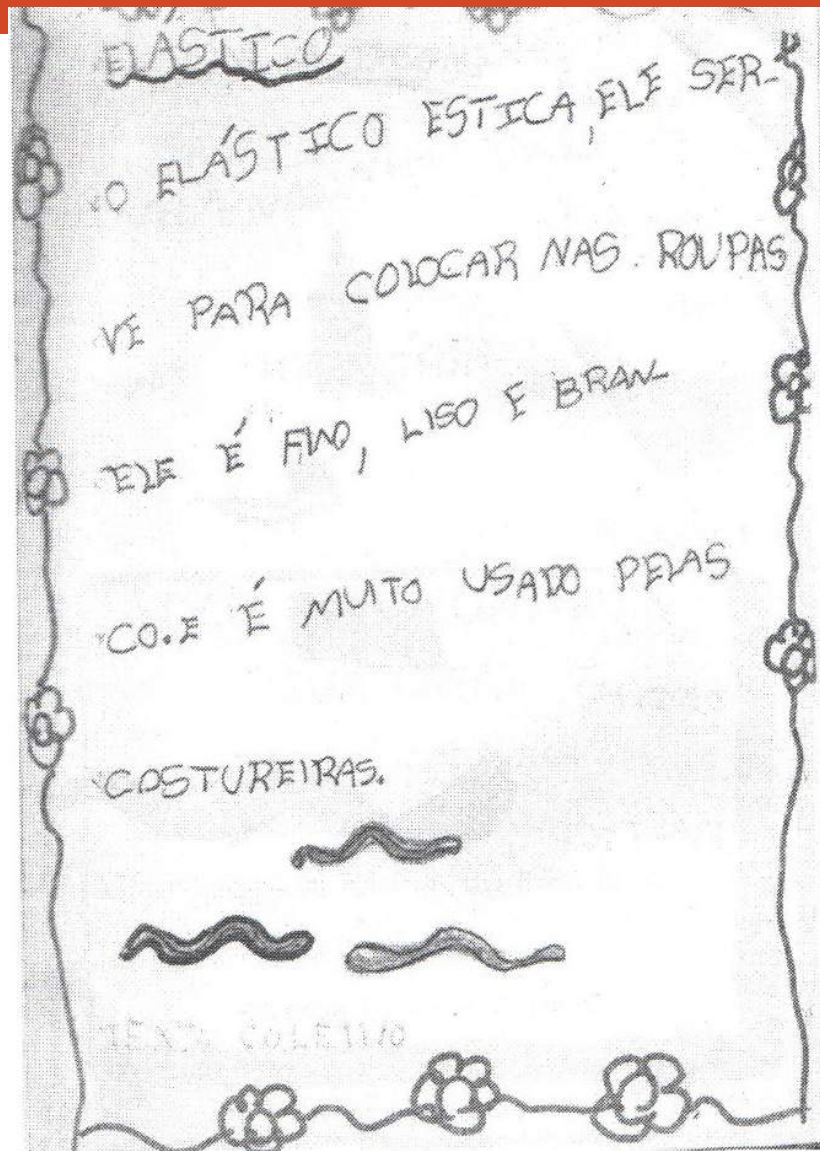 ELÁSTICO
O ELÁSTICO ESTICA, ELE SER-
VE PARA COLOCAR NAS ROUPAS
ELE É FINO, LISO E BRAN-
CO. E É MUITO USADO PELAS
COSTUREIRAS.
TEXTO COLETIVO